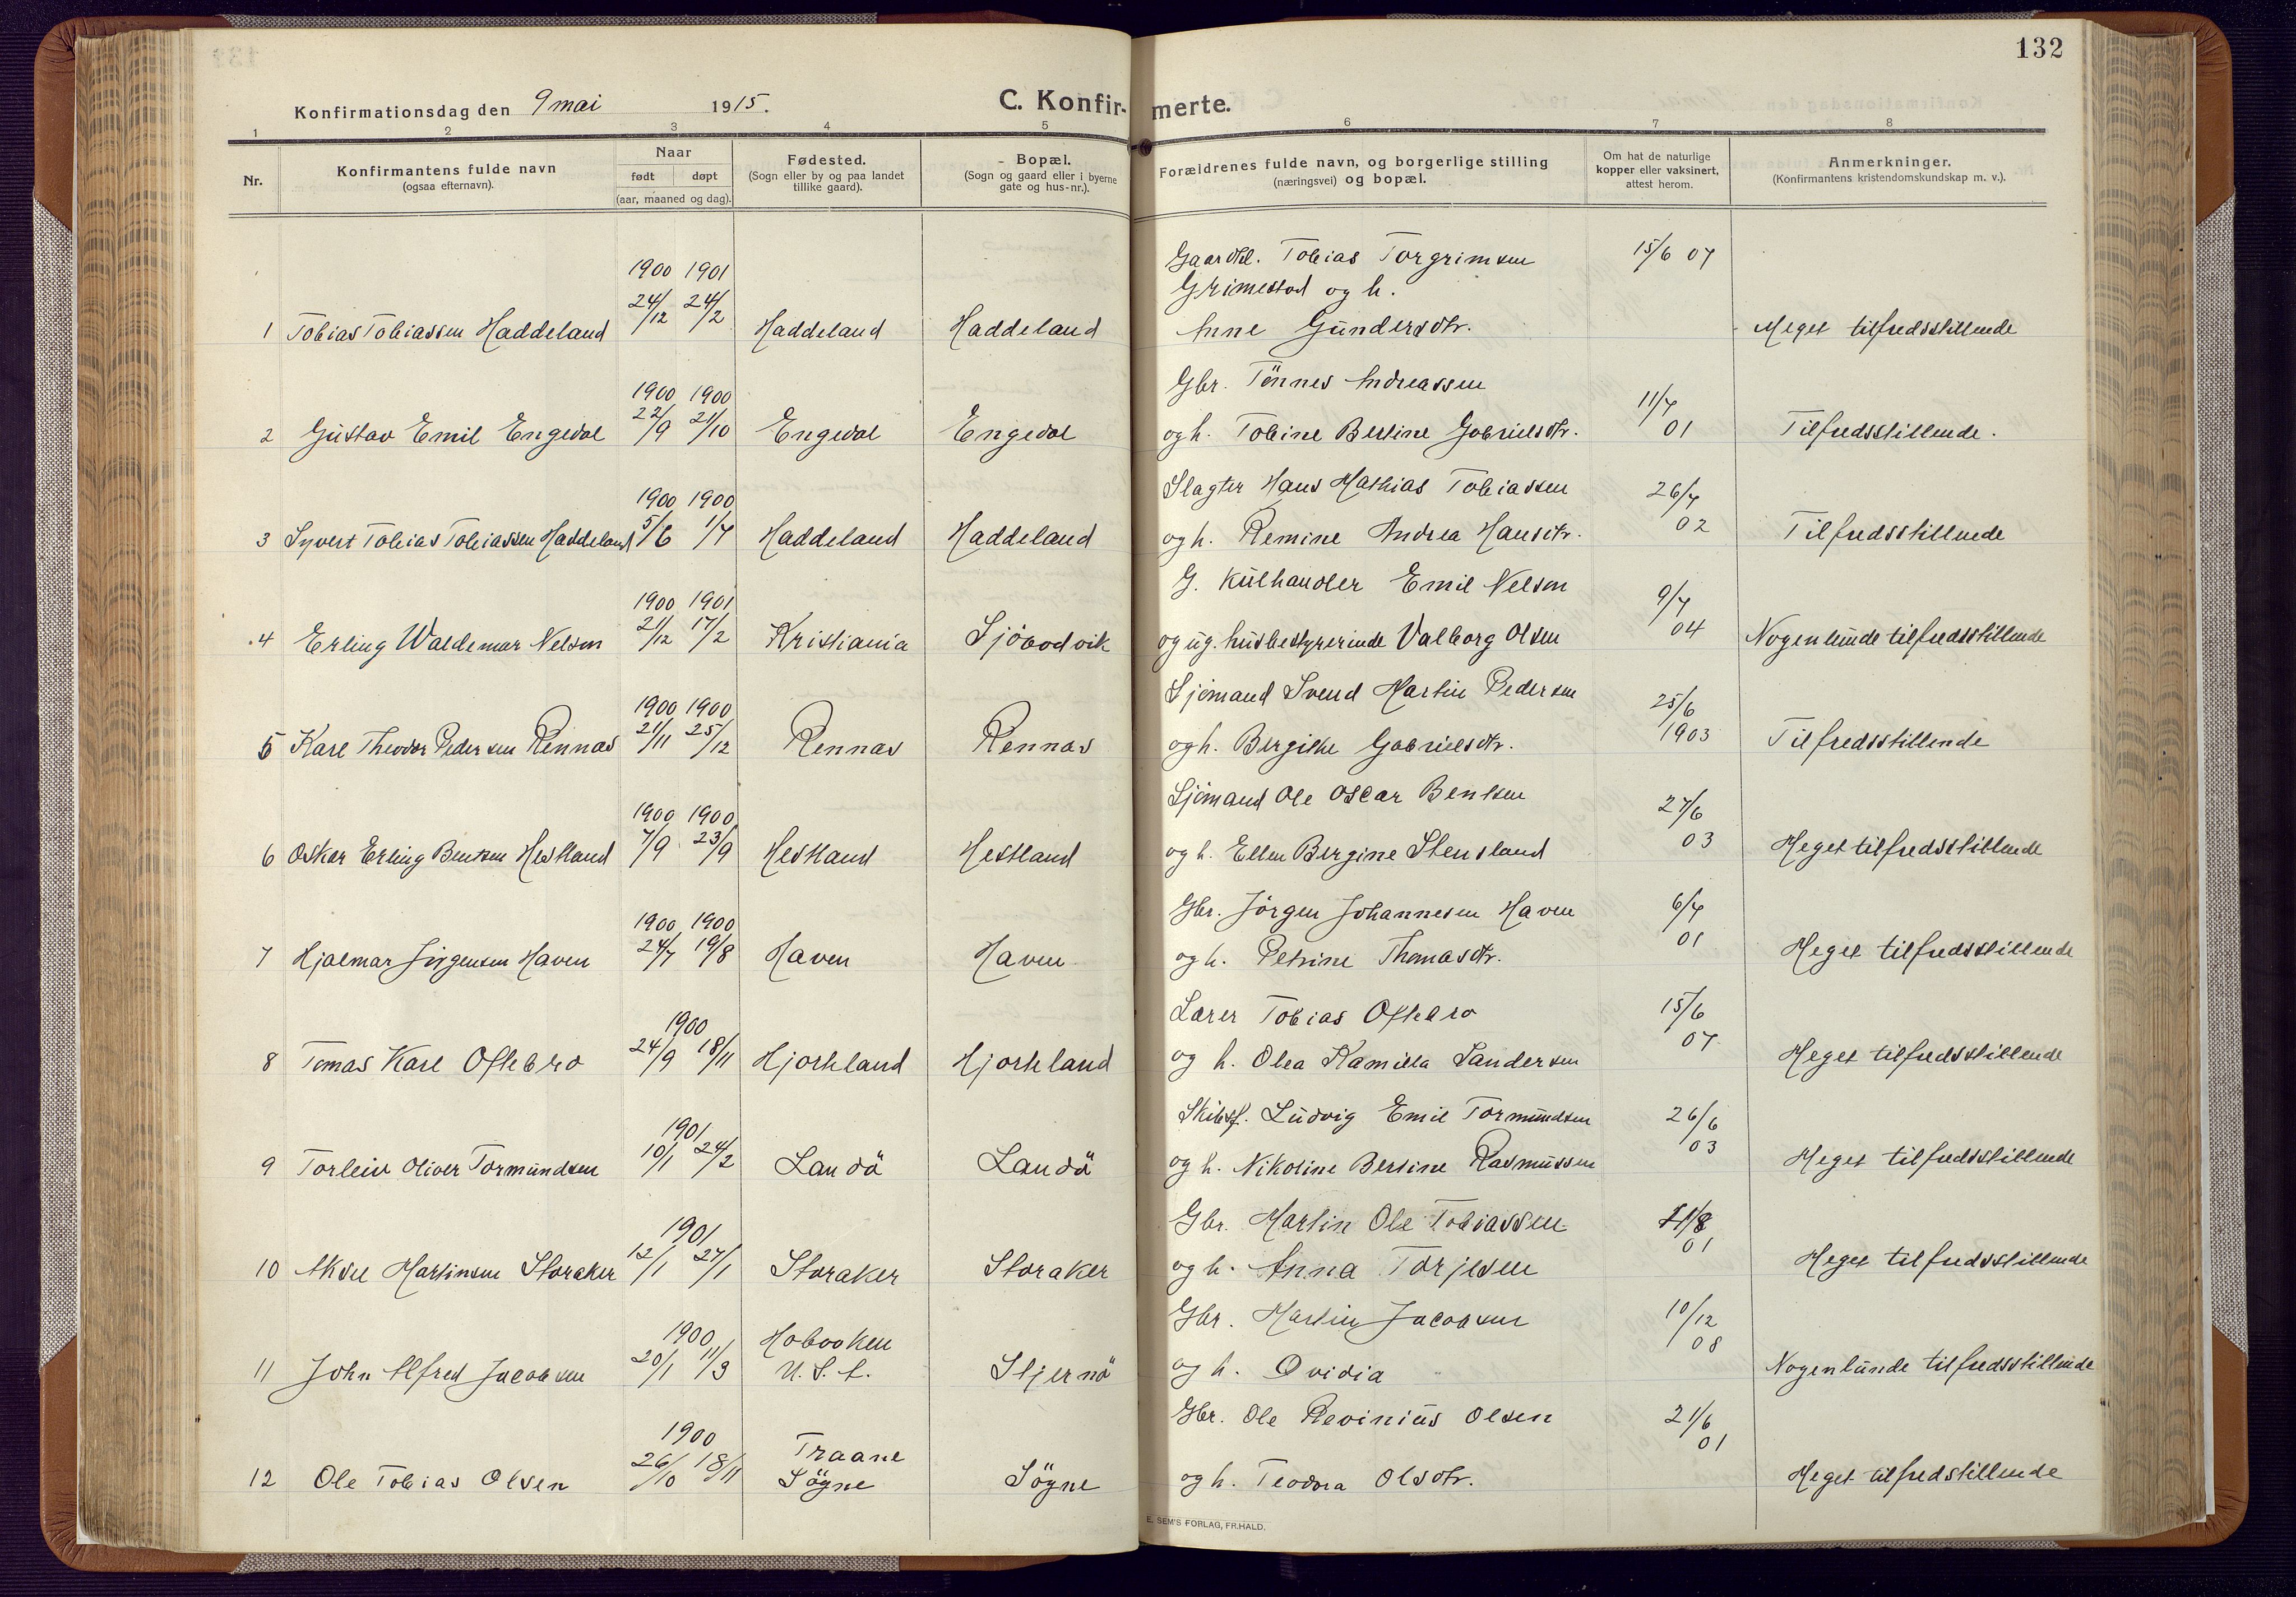 132
Konfirmationsdag den 9 mai 1915.
C. Konfirmerte.
1 2 3 4 5 6 7 8
Nr.
Konfirmantens fulde navn
(ogsaa efternavn).
Naar
født døpt
(aar, maaned og dag).
Fødested.
(Sogn eller by og paa landet
tillike gaard).
Bopæl.
(Sogn og gaard eller i byerne
gate og hus-nr.).
Forældrenes fulde navn, og borgerlige stilling
(næringsvei) og bopæl.
Om hat de naturlige
kopper eller vaksinert,
attest herom.
Anmerkninger.
(Konfirmantens kristendomskundskap m. v.).
1900 1901 Gaardbl. Tobias Torgrimsen 15/6 07
24/12 24/2 Grimestad og h.
1 Tobias Tobiassen Haddeland Haddeland Haddeland Anne Gundersdtr. Meget tilfredsstillende
1900 1900 Gbr. Tønnes Andreassen 11/7
2 Gustav Emil Engedal 22/9 21/10 Engedal Engedal og h. Tobine Bertine Gabrielsdtr. 01 Tilfredsstillende.
1900 1900 Slagter Hans Mathias Tobiassen 26/7
3 Syvert Tobias Tobiassen Haddeland 5/6 1/7 Haddeland Haddeland og h. Remine Andrea Hansdtr. 02 Tilfredsstillende
1900 1901 G. Kulhandler Emil Nelson 9/7
4 Erling Waldemar Nelson 21/12 17/2 Kristiania Sjöbodvik og ug. husbestyrerinde Valborg Olsen 04 Nogenlunde tilfredsstillende
1900 1900 Sjömand Svend Martin Pedersen 25/6
5 Karl Theodor Pedersen Rennas 21/11 25/12 Rennas Rennas og h. Bergithe Gabrielsdtr. 1903 Tilfredsstillende
1900 1900 Sjömand Ole Oscar Bentsen 27/6
6 Oskar Erling Bentsen Hestland 7/9 23/9 Hestland Hestland og h. Ellen Bergine Stensland 03 Meget tilfredsstillende
1900 1900 Gbr. Jörgen Johannesen Haven 6/7
7 Hjalmar Jörgensen Haven 24/7 19/8 Haven Haven og h. Petrine Thomasdtr. 01 Meget tilfredsstillende
1900 Lærer Tobias Oftebro 15/6
8 Tomas Karl Oftebro 24/9 18/11 Hjorteland Hjorteland og h. Olea Kamilla Sandersen 07 Meget tilfredsstillende
1901 Skibsf. Ludvig Emil Tormundsen 26/6
9 Torleiv Oliver Tormundsen 10/1 24/2 Landö Landö og h. Nikoline Bertine Rasmussen 03 Meget tilfredsstillende
1901 Gbr. Martin Ole Tobiassen 11/8
10 Aksel Martinsen Storaker 12/1 27/1 Storaker Storaker og h. Anna Torjesen 01 Meget tilfredsstillende
1900 Hobooken Gbr. Martin Jacobsen 10/12
11 John Alfred Jacobsen 20/1 11/3 U. S. A. Stjernö og h. Ovidia 08 Nogenlunde tilfredsstillende
1900 Traane Gbr. Ole Revinius Olsen 21/6
12 Ole Tobias Olsen 26/10 18/11 Sögne Sögne og h. Teodora Olsdtr. 01 Meget tilfredstillende
E. SEM'S FORLAG, FR.HALD.